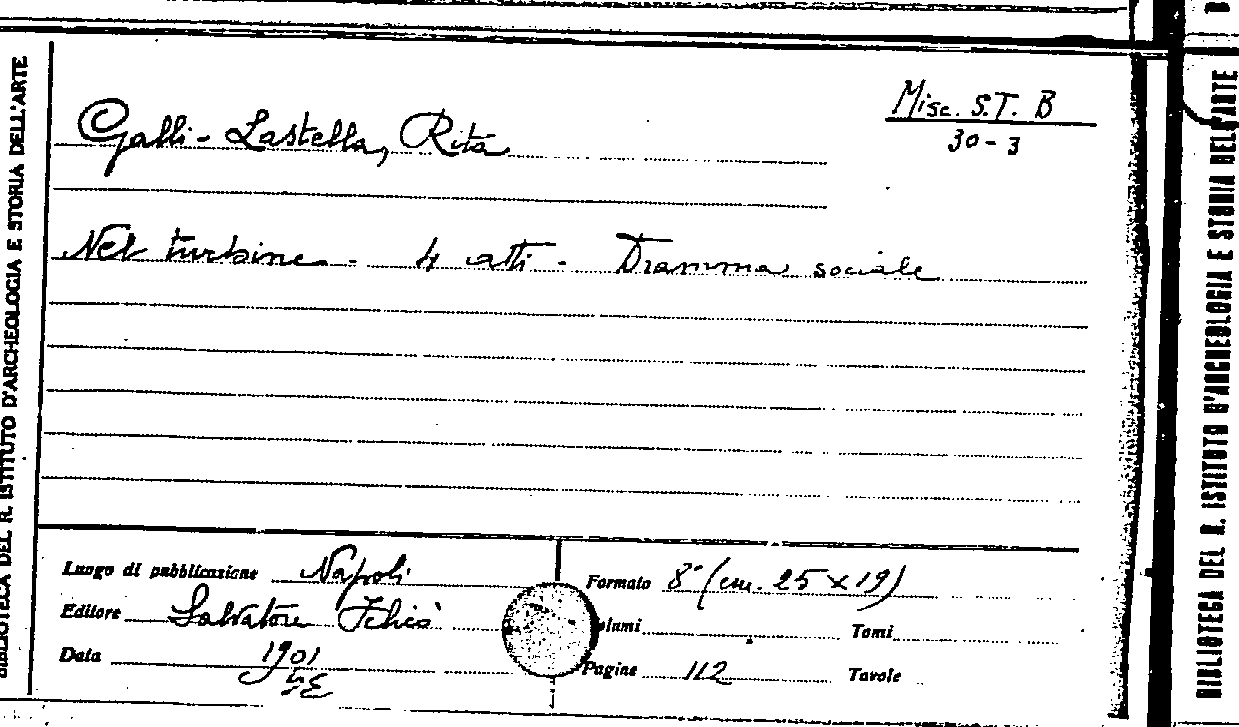 BIBLIOTECA DEL R. ISTITUTO D'ARCHEOLOGIA E STORIA DELL'ARTE
Misc. S.T. B
30-3
Galli-Lastella, Rita
Nel turbine - 4 atti - Dramma sociale
Luogo di pubblicazione Napoli
Formato 8° (cm. 25 x 19)
Editore Salvatore
Volumi Tomi
Data 1901
Pagine 112 Tavole
BIBLIOTECA DEL R. ISTITUTO D'ARCHEOLOGIA E STORIA DELL'ARTE